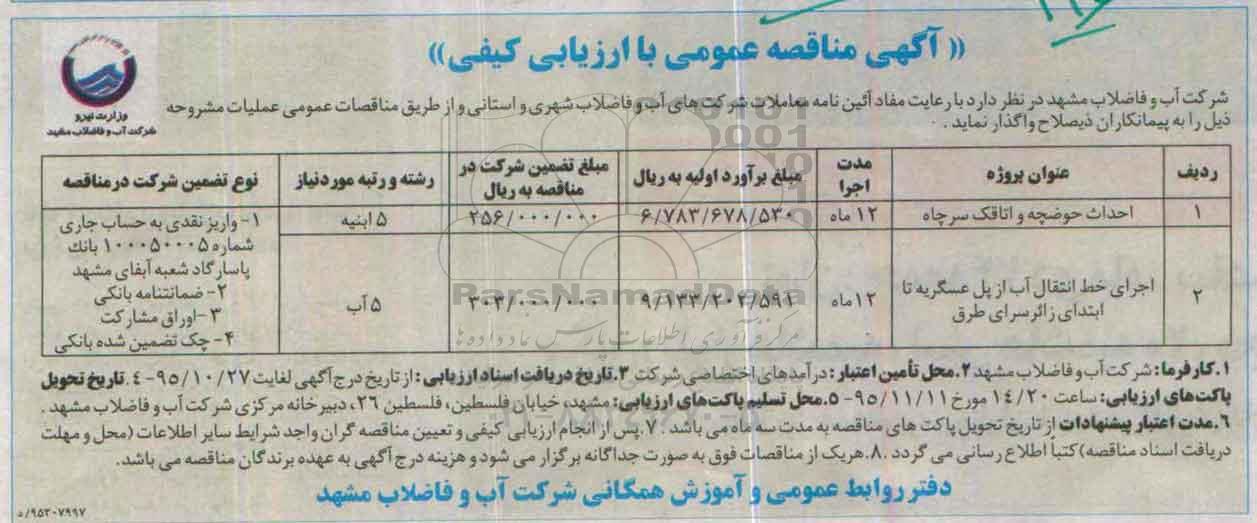 (( آگهی مناقصه عمومی با ارزیابی کیفی ))
وزارت نیرو
شرکت آب و فاضلاب مشهد
شرکت آب و فاضلاب مشهد در نظر دارد با رعایت مفاد آئین نامه معاملات شرکت های آب و فاضلاب شهری و استانی و از طریق مناقصات عمومی عملیات مشروحه
ذیل را به پیمانکاران ذیصلاح واگذار نماید .
ردیف | عنوان پروژه | مدت اجرا | مبلغ برآورد اولیه به ریال | مبلغ تضمین شرکت در مناقصه به ریال | رشته و رتبه مورد نیاز | نوع تضمین شرکت در مناقصه
۱ | احداث حوضچه و اتاقک سرچاه | ۱۲ ماه | ۶/۷۸۳/۶۷۸/۵۳۰ | ۲۵۶/۰۰۰/۰۰۰ | ۵ ابنیه
۲ | اجرای خط انتقال آب از پل عسگریه تا ابتدای زائرسرای طرق | ۱۲ ماه | ۹/۱۳۳/۲۰۲/۵۹۱ | ۳۰۳/۰۰۰/۰۰۰ | ۵ آب
۱- واریز نقدی به حساب جاری
شماره ۱۰۰۰۵۰۰۰۵ بانک
پاسارگاد شعبه آبفای مشهد
۲- ضمانتنامه بانکی
۳- اوراق مشارکت
۴- چک تضمین شده بانکی
ParsNamadData
مرکز فرآوری اطلاعات پارس نماد داده ها
۱. کارفرما: شرکت آب و فاضلاب مشهد ۲. محل تأمین اعتبار: درآمدهای اختصاصی شرکت ۳. تاریخ دریافت اسناد ارزیابی: از تاریخ درج آگهی لغایت ۹۵/۱۰/۲۷- ۴. تاریخ تحویل
پاکت های ارزیابی: ساعت ۱۴/۲۰ مورخ ۹۵/۱۱/۱۱- ۵. محل تسلیم پاکت های ارزیابی: مشهد، خیابان فلسطین، فلسطین ۲۶، دبیرخانه مرکزی شرکت آب و فاضلاب مشهد .
۶. مدت اعتبار پیشنهادات از تاریخ تحویل پاکت های مناقصه به مدت سه ماه می باشد . ۷. پس از انجام ارزیابی کیفی و تعیین مناقصه گران واجد شرایط سایر اطلاعات (محل و مهلت
دریافت اسناد مناقصه) کتباً اطلاع رسانی می گردد . ۸. هریک از مناقصات فوق به صورت جداگانه برگزار می شود و هزینه درج آگهی به عهده برندگان مناقصه می باشد.
دفتر روابط عمومی و آموزش همگانی شرکت آب و فاضلاب مشهد
۹۵۲۰۷۹۹۷/د